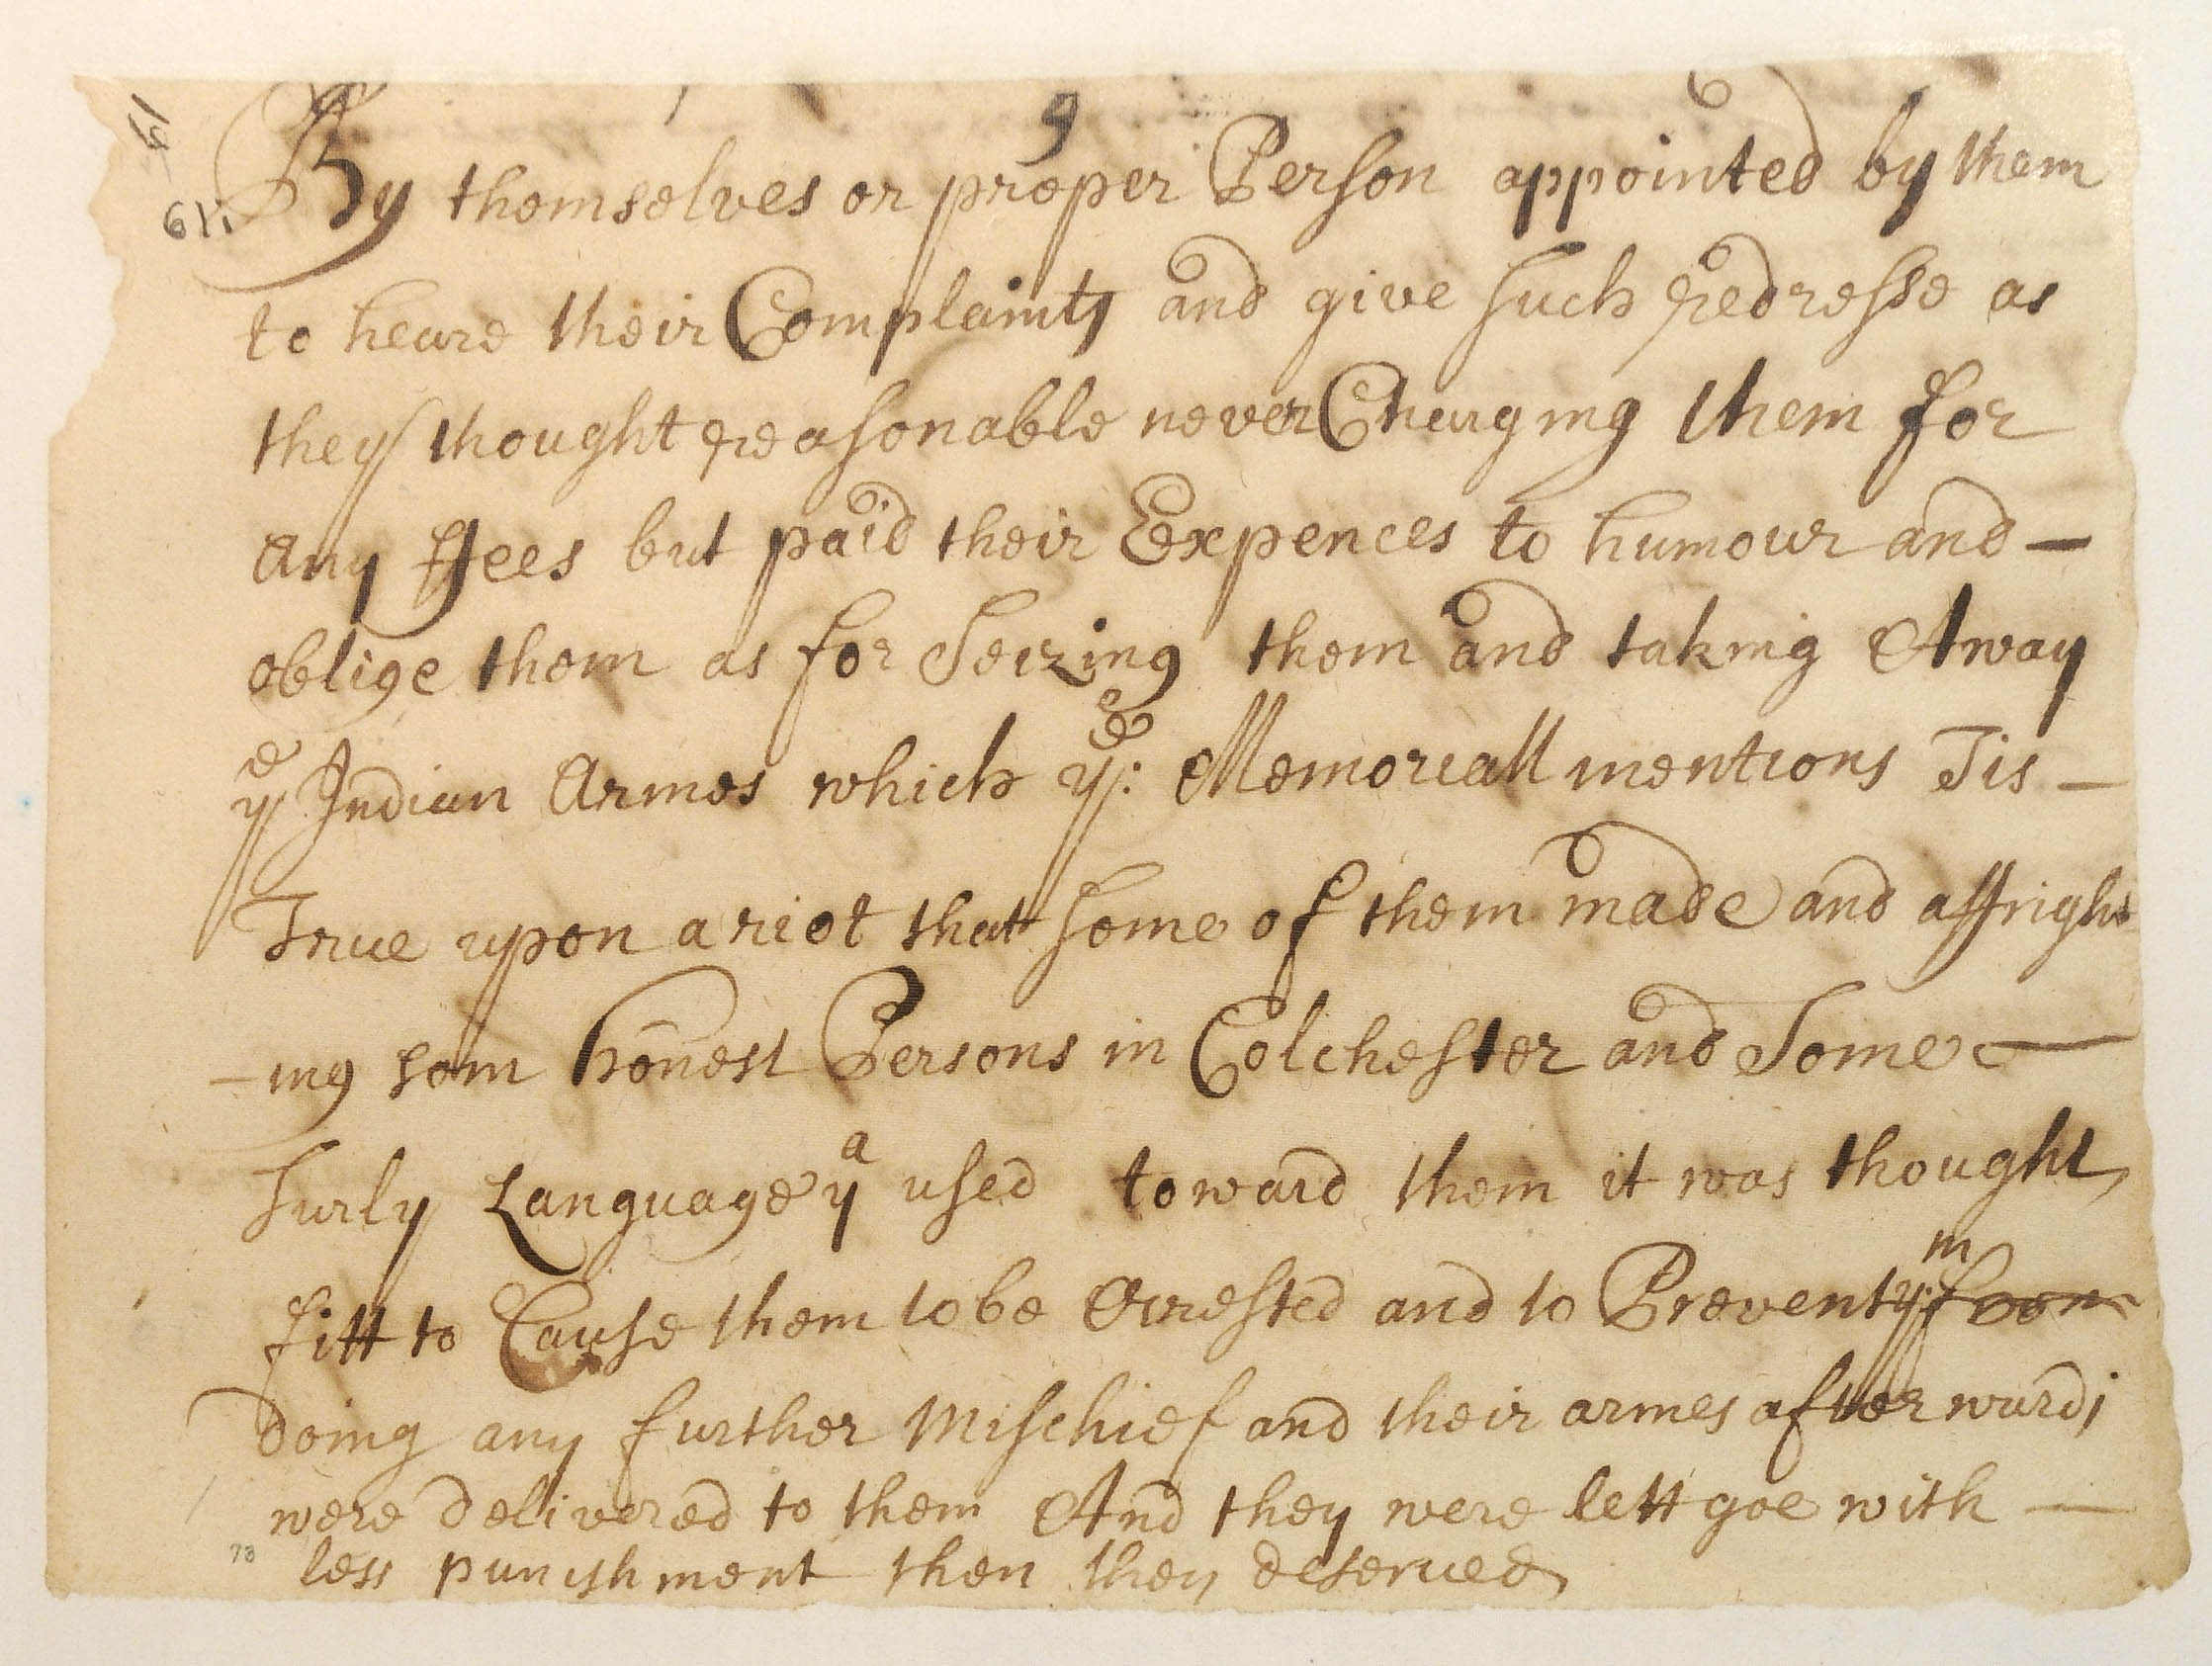 9
61
61.
By themselves or proper Person appointed by them
to heare their Complaints and give such Redresse as
they thought Reasonable never Charging them for
any ffees but paid their Expences to humour and —
oblige them as for Seizing them and taking Away
yͤ Indian Armes which yͤ: Memoriall mentions Tis —
True upon a riot that some of them made and affright
—ing som honest Persons in Colchester and Some —
surly Language yᵃ used toward them it was thought
fitt to Cause them to be Arrested and to Prevent yᵐ: from
doing any further Mischief and their armes afterwards
were delivered to them And they were lett goe with —
less punishment then they deserved
73